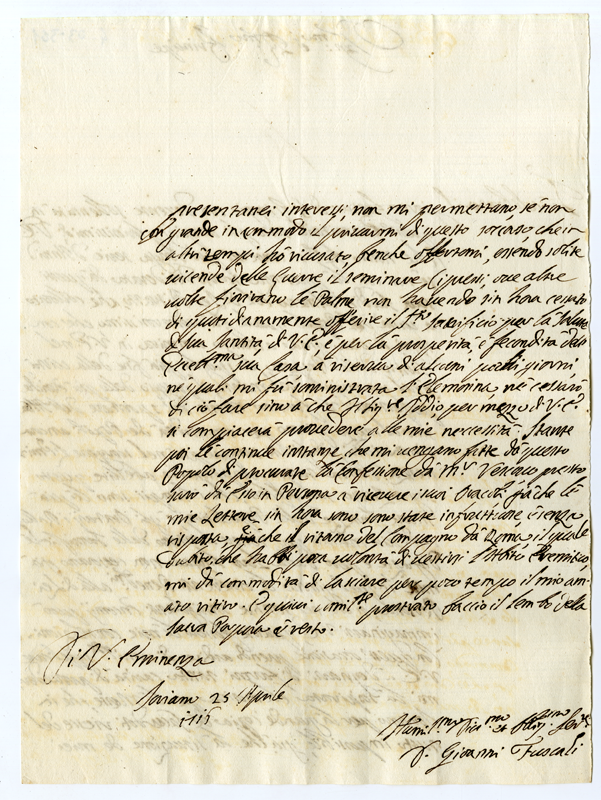 presentanei interessi, non mi permettano, se non
con grande incommodo il privarmi di questo soccorso che in
altri tempi hò ricusato, benche offertomi, essendo solite
vicende delle Guerre il seminare Cipressi, ove altre
volte fiorivano le Palme non havendo sin hora cessato
di quotidianamente offerire il Sto Sacrificio per la Salute
Sua Santità di V. E. e per la prosperità e fecondità della
Eccell.ma sua Casa à riserva di alcuni pochi giorni
ne quali mi fù somministrata l'Elemosina ne cessarò
di ciò fare sino à che Iddio per mezo di V. E.
si compiacerà provedere alle mie neccessità. Stante
poi le continue instanze che mi vengano fatte dà questo
Popolo di procurare la Confessione da Mr Vescovo presto
sarò dà Esso in Persona à ricevere i suoi già che le
mie Lettere sin hora sono state infruttuose e senza
risposta già che il ritorno del Compagno dà Roma il quale
dubito, che habbi poca volontà di vestirsi l'Habito Eremitico,
mi dà commodità di lasciare per poco tempo il mio am-
ato ritiro. E quivi umil.te prostrato faccio il lembo della
Sacra Porpora e resto.
Di V. Eminenza
25 Aprile
Humil.mo et Serv.re
D. Giovanni Fuscali